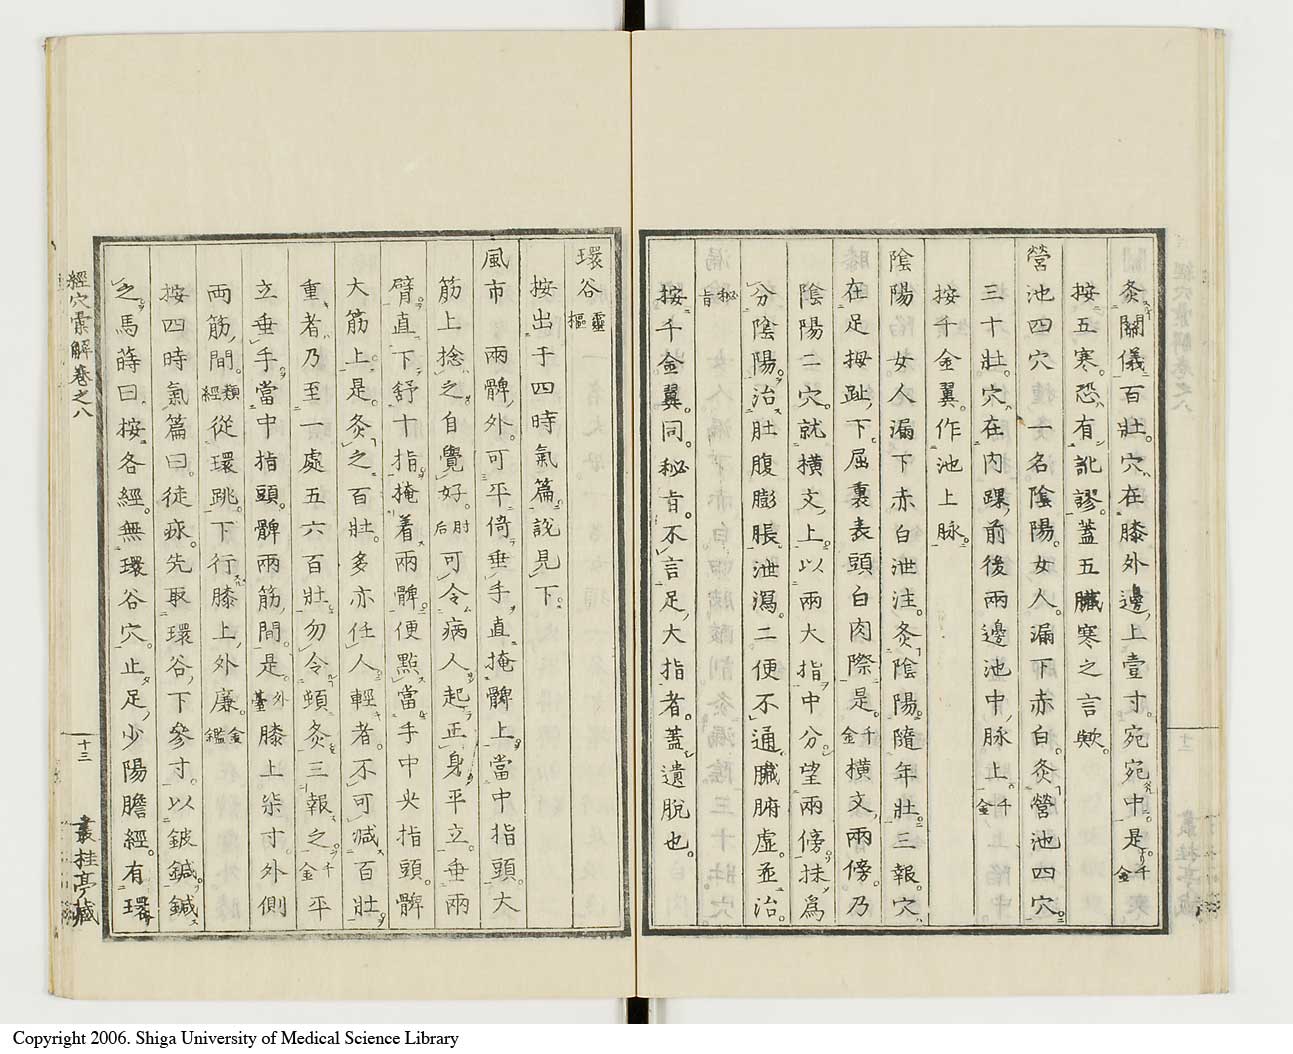 灸關儀百壯。穴在膝外邊上壹寸。宛宛中是。千金
按五寒。恐有訛謬。蓋五臟寒之言歟。
營池四穴 一名陰陽。女人漏下赤白。灸營池四穴
三十壯。穴在內踝前後兩邊池中脉上。千金
按千金翼。作池上脉。
陰陽 女人漏下赤白泄注。灸陰陽。隨年壯。三報。穴
在足拇趾下屈裏表頭白肉際是。千金 橫文兩傍。乃
陰陽二穴。就橫文上。以兩大指中分。望兩傍抹。爲
分陰陽。治肚腹膨脹。泄瀉。二便不通。臟腑虛。並治。
秘旨
按千金翼同。秘旨。不言足大指者。蓋遺脫也。
環谷 靈樞
按出于四時氣篇。說見下。
風市 兩髀外。可平倚垂手。直掩髀上。當中指頭大
筋上捻之。自覺好。肘后 可令病人起正身平立。垂兩
臂。直下舒十指。掩着兩髀。便點當手中央指頭。髀
大筋上。是。灸之百壯。多亦任人。輕者。不可減百壯。
重者。乃至一處五六百壯。勿令頓灸。三報之。千金 平
立垂手。當中指頭。髀兩筋間。是。外臺 膝上柒寸。外側
兩筋間。類經 從環跳下行膝上外廉。金鑑
按四時氣篇曰。徒㽷。先取環谷下參寸。以鈹鍼鍼
之。馬蒔曰。按各經。無環谷穴。止足少陽膽經。有環
經穴彙解卷之八
十三
叢桂亭藏
Copyright 2006. Shiga University of Medical Science Library